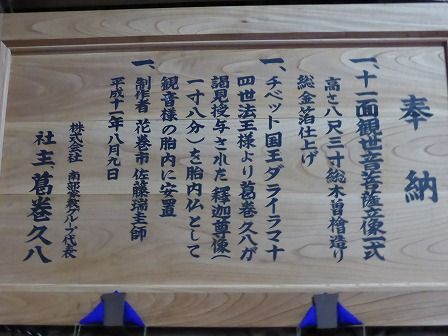 奉納
一、十一面観世音菩薩立像一式
高さ八尺三寸総木曽檜造り
総金箔仕上げ
一、チベット国王ダライラマ十
四世法王様より葛巻久八が
謁見授与された釈迦尊像（
一寸八分）を胎内仏として
観音様の胎内に安置
一、制作者 花巻市 佐藤瑞圭師
平成十一年八月九日
株式会社 南部屋敷グループ代表
社主 葛巻久八